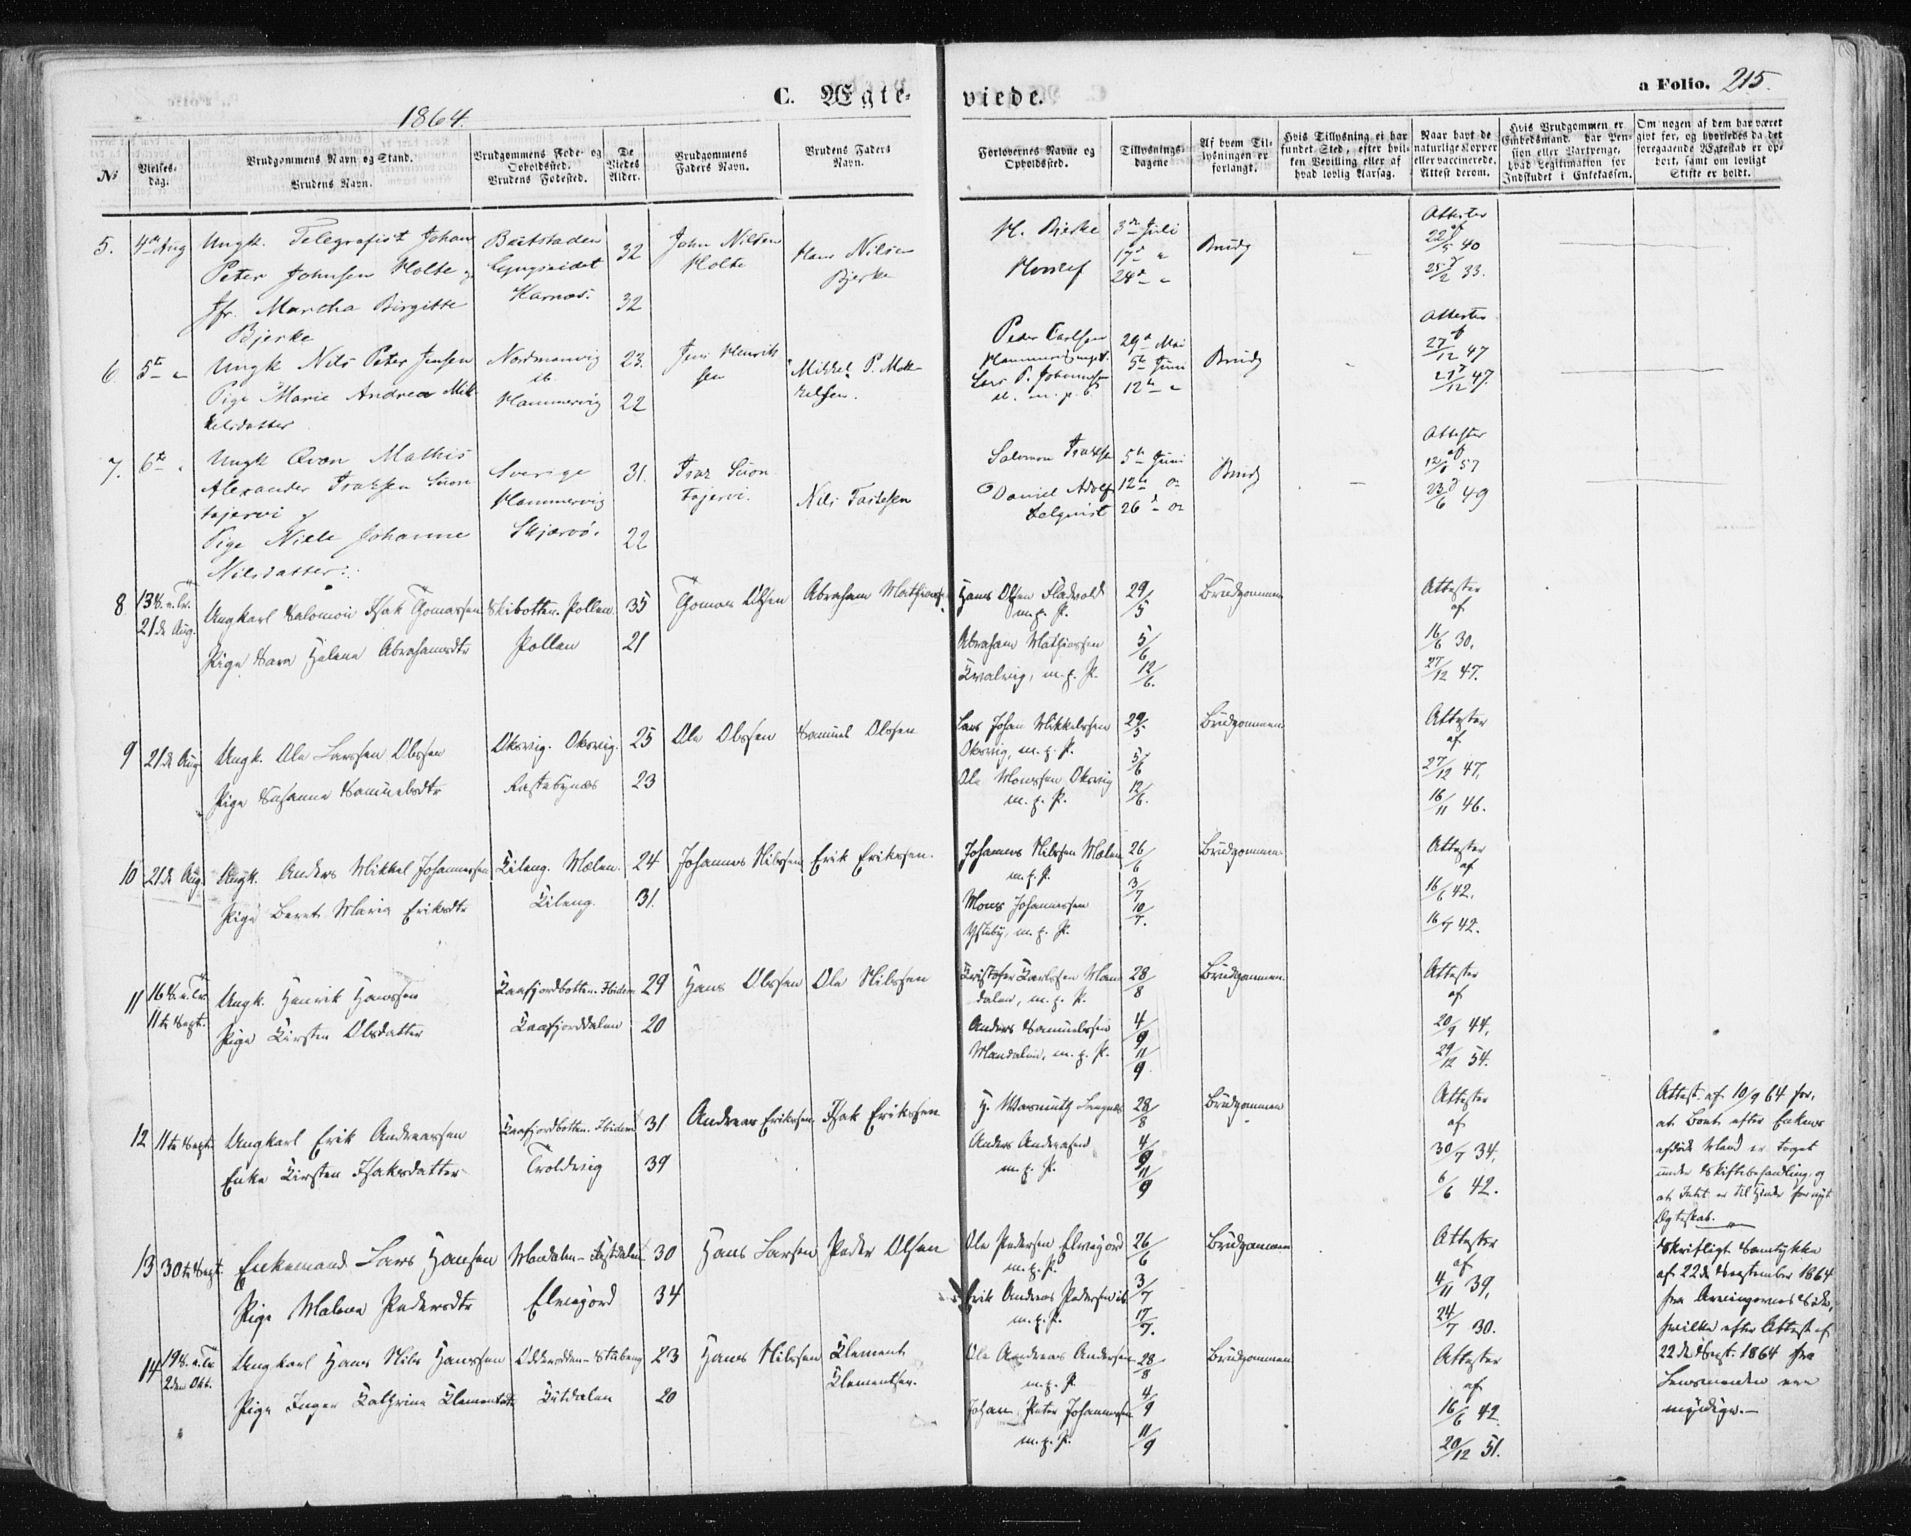 C. Ægte-
viede.
a Folio. 215.
1864.
No
Vielses-
dag.
Brudgommens Navn og Stand.
Brudens Navn.
Brudgommens Føde- og
Opholdssted.
Brudens Fødested.
De
Viedes
Alder.
Brudgommens
Faders Navn.
Brudens Faders
Navn.
Forlovernes Navne og
Opholdssted.
Tillysnings-
dagene
Af hvem Til-
lysningen er
forlangt.
Hvis Tillysning ei har
fundet Sted, efter hvil-
ken Bevilling eller af
hvad lovlig Aarsag.
Naar havt de
naturlige Kopper
eller vaccinerede.
Attest derom.
Hvis Brudgommen er
Embedsmand, har Pen-
sion eller Vartpenge,
hvad Legitimation for
Indskudet i Enkekassen.
Om nogen af dem har været
givt før, og hvorledes da det
foregaaende Ægteskab er op-
hørt, samt om lovligt
Skifte er holdt.
5. 4de Aug Ungk. Telegrafist Johan
Peter Johnsen Holte og
Jfr. Martha Birgitte
Bjerke
Lyngseidet
Karnæs.
32
32
John Nilsen
Holte
Hans Nilsen
Bjerke
H. Bjerke
3de Juli
17de "
24de "
Brudg
Attester
af
22/5 40
25/2 33.
6 5te " Ungk Nils Peter Jensen
Pige Marie Andrea Mik-
kelsdatter
Nordmanvig
Hammervig
23.
22
Jens Henrik
sen
Mikkel P. Mik-
kelsen.
Peder Carlsen
Lars P. Johannesen
m. p. P.
29de Mai
5te Juni
12te "
Brudg
Attester
af
27/12 47
27/12 47.
7. 6te " Ungk Qvæn Mathis
Alexander Isaksen Suon-
tajervi og
Pige Niele Johanne
Nilsdatter:
Sverige
Hammervig
Skjærvø.
31.
22
Isak Suon
tajervi.
Nils
Salomon Isaksen
Daniel Adolf
5te Juni
12te
26de
Brudg
Attester
af
57
23/6 49
8 13 S. e. Tr.
21de Aug. Ungkarl Salomon Isak Thomassen
Pige Sara Helena Abrahamsdtr
Skibotten. Pollen.
Pollen
35
21
Thomas Olsen
Abraham Mathiassen
Hans Olsen
m. p. P.
Abraham Mathiassen
Kvalvig, m. p. P.
29/5
5/6
12/6.
Brudgommen
Attester
af
16/6 30.
27/12 47.
9 21de Aug. Ungk. Ole Larssen Olssen
Pige Susanna Samuelsdtr
Oksvig. Oksvig.
Rastebynæs
25
23
Ole Olssen
Samuel Olssen
Lars Johan Mikkelssen
Oksvig, m. p. P.
Ole Monssen Oksvig
m. p. P.
29/5
5/6
12/6.
Brudgommen
Attester
af
27/12 47,
16/11 46.
10 21de Aug. Ungk. Anders Mikkel Johannessen
Pige Berit Maria Eriksdtr
Kileng. Mælen.
Kileng.
24
31.
Johannes Nilssen
Erik Erikssen.
Johannes Nilssen Mælen
m. p. P.
Mons Johannessen
m. p. P.
26/6
3/7
10/7.
Brudgommen
Attester
af
16/6 42.
42.
11 16 S. e. Tr.
11te Septr. Ungk. Henrik Hanssen
Pige Kirsten Olsdatter
Kaafjordbotten. Ibidem
Kaafjorddalen
29
20
Hans Olssen
Ole Nilssen
Kristofer Karlssen Man-
dalen, m. p. P.
Anders Samuelssen
Mandalen, m. p. P.
28/8
4/9
11/9
Brudgommen
Attester
af
20/9 44,
29/12 54.
12 11te Septr. Ungkarl Erik Andreassen
Enke Kirsten Isaksdatter
Kaafjordbotten. Ibidem
Troldvig
31
39
Andreas Erikssen
Isak Erikssen
Anders Andreassen
m. p. P.
28/8
4/9
11/9
Brudgommen
Attester
af
30/7 34,
6/6 42.
Attest af 10/9 64 for,
at Boet efter Enkens
afdøde Mand er taget
under Skiftebehandling, og
at Intet er til Hinder for nyt
Ægteskab.
13 30te Sept. Enkemand Lars Hansen
Pige Malene Pedersdtr
Elvegord
30
34
Hans Larsen
Peder Olsen
Ole Pedersen Elvegord
m. p. P.
Erik Andreas Pedersen ib.
m. p. P.
26/6
3/7
17/7.
Brudgommen
Attester
af
4/11 39,
24/7 30.
Skriftligt Samtykke
af 22de September 1864
fra Arvingernes Side,
hvilke efter Attest af
22de Sept. 1864 fra
Lensmanden ere
myndige.—
14 19 S. e. Tr.
2den Okt. Ungkarl Hans Nils Hanssen
Pige Inger Kathrine Klementsdtr
Kitdalen
23
20
Hans Nilssen
Klement
Klementsen.
Ole Andreas Andersen
m. p. P.
Johan Peter Johannessen
m. p. P.
28/8
4/9
11/9
Brudgommen
Attester
af
16/6 42
20/12 51.